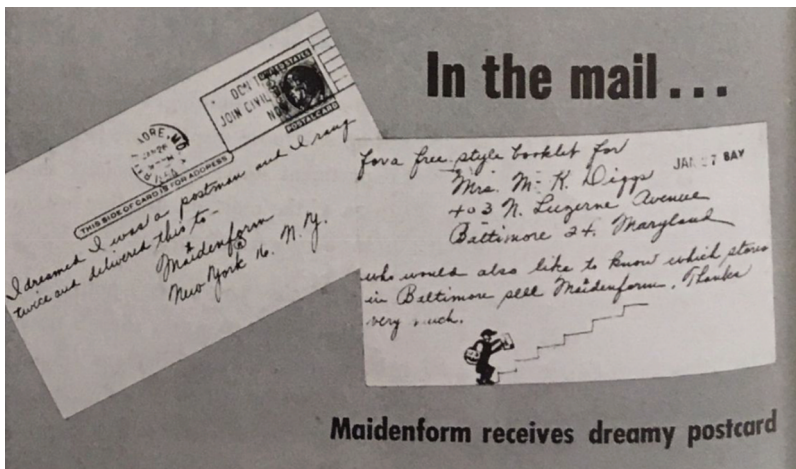 In the mail...
UNITED STATES
JOIN CIVIL
NOW
POSTAL CARD
THIS SIDE OF CARD IS FOR ADDRESS
I dreamed I was a postman and I rang
twice and delivered this to-
Maidenform
®
New York 16. N. Y.
for a free style booklet for
JAN 27 BAY
Mrs. M. K. Diggs
403 N. Luzerne Avenue
Baltimore 24, Maryland
who would also like to know which stores
in Baltimore sell Maidenform. Thanks
very much.
Maidenform receives dreamy postcard